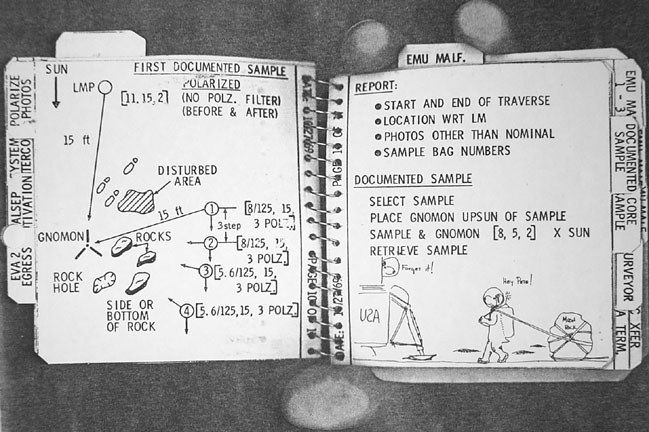 SUN
FIRST DOCUMENTED SAMPLE
LMP
[11, 15, 2]
POLARIZED
(NO POLZ. FILTER)
(BEFORE & AFTER)
15 ft
DISTURBED
AREA
15 ft
1
[8/125, 15,
3 POLZ]
3 step
GNOMON
ROCKS
2
[8/125, 15,
3 POLZ.]
3
[5.6/125, 15,
3 POLZ.]
ROCK
HOLE
SIDE OR
BOTTOM
OF ROCK
4
[5.6/125, 15, 3 POLZ.]
POLARIZE
PHOTOS
ALSEP
EVA 2
EGRESS
EMU MALF.
REPORT:
START AND END OF TRAVERSE
LOCATION WRT LM
PHOTOS OTHER THAN NOMINAL
SAMPLE BAG NUMBERS
DOCUMENTED SAMPLE
SELECT SAMPLE
PLACE GNOMON UPSUN OF SAMPLE
SAMPLE & GNOMON [8, 5, 2] X SUN
RETRIEVE SAMPLE
Forget it!
Hey Pete!
USA
Moon
Rock
DOCUMENTED
SAMPLE
CORE
XFER